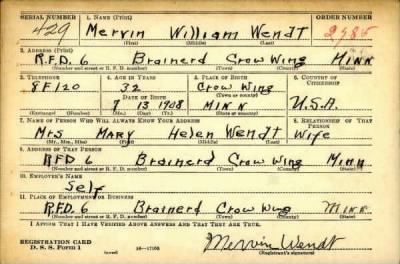 SERIAL NUMBER 1. NAME (Print) ORDER NUMBER
429 Mervin William Wendt 2985
(First) (Middle) (Last)
2. ADDRESS (Print)
R.F.D. 6 Brainerd Crow Wing Minn
(Number and street or R. F. D. number) (Town) (County) (State)
3. TELEPHONE 4. AGE IN YEARS 5. PLACE OF BIRTH 6. COUNTRY OF CITIZENSHIP
8F120 32 Crow Wing
DATE OF BIRTH (Town or county)
7 13 1908 MINN U.S.A.
(Exchange) (Number) (Mo.) (Day) (Yr.) (State or country)
7. NAME OF PERSON WHO WILL ALWAYS KNOW YOUR ADDRESS 8. RELATIONSHIP OF THAT PERSON
Mrs Mary Helen Wendt Wife
(Mr., Mrs., Miss) (First) (Middle) (Last)
9. ADDRESS OF THAT PERSON
RFD 6 Brainerd Crow Wing Minn
(Number and street or R. F. D. number) (Town) (County) (State)
10. EMPLOYER'S NAME
Self
11. PLACE OF EMPLOYMENT OR BUSINESS
R.F.D. 6 Brainerd Crow Wing Minn
(Number and street or R. F. D. number) (Town) (County) (State)
I AFFIRM THAT I HAVE VERIFIED ABOVE ANSWERS AND THAT THEY ARE TRUE.
REGISTRATION CARD
D. S. S. Form 1 (over) 16-17105 Mervin Wendt
(Registrant's signature)